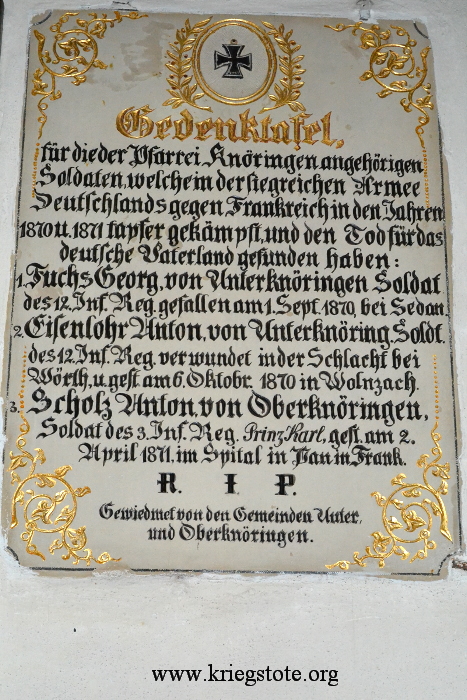 Gedenktafel,
für die der Pfarrei Knöringen angehörigen
Soldaten, welche in der siegreichen Armee
Deutschlands gegen Frankreich in den Jahren
1870 u. 1871 tapfer gekämpft, und den Tod für das
deutsche Vaterland gefunden haben:
1. Fuchs Georg, von Unterknöringen Soldat
des 12. Inf. Reg. gefallen am 1. Sept. 1870, bei Sedan.
2. Eisenlohr Anton, von Unterknöring. Soldt.
des 12. Inf. Reg. verwundet in der Schlacht bei
Wörth, u. gest. am 6. Oktobr. 1870 in Wolnzach.
3. Scholz Anton, von Oberknöringen,
Soldat des 3. Inf. Reg. Prinz Karl, gest. am 2.
April 1871. im Spital in Pan in Frank.
R. I. P.
Gewiedmet von den Gemeinden Unter,
und Oberknöringen.
www.kriegstote.org